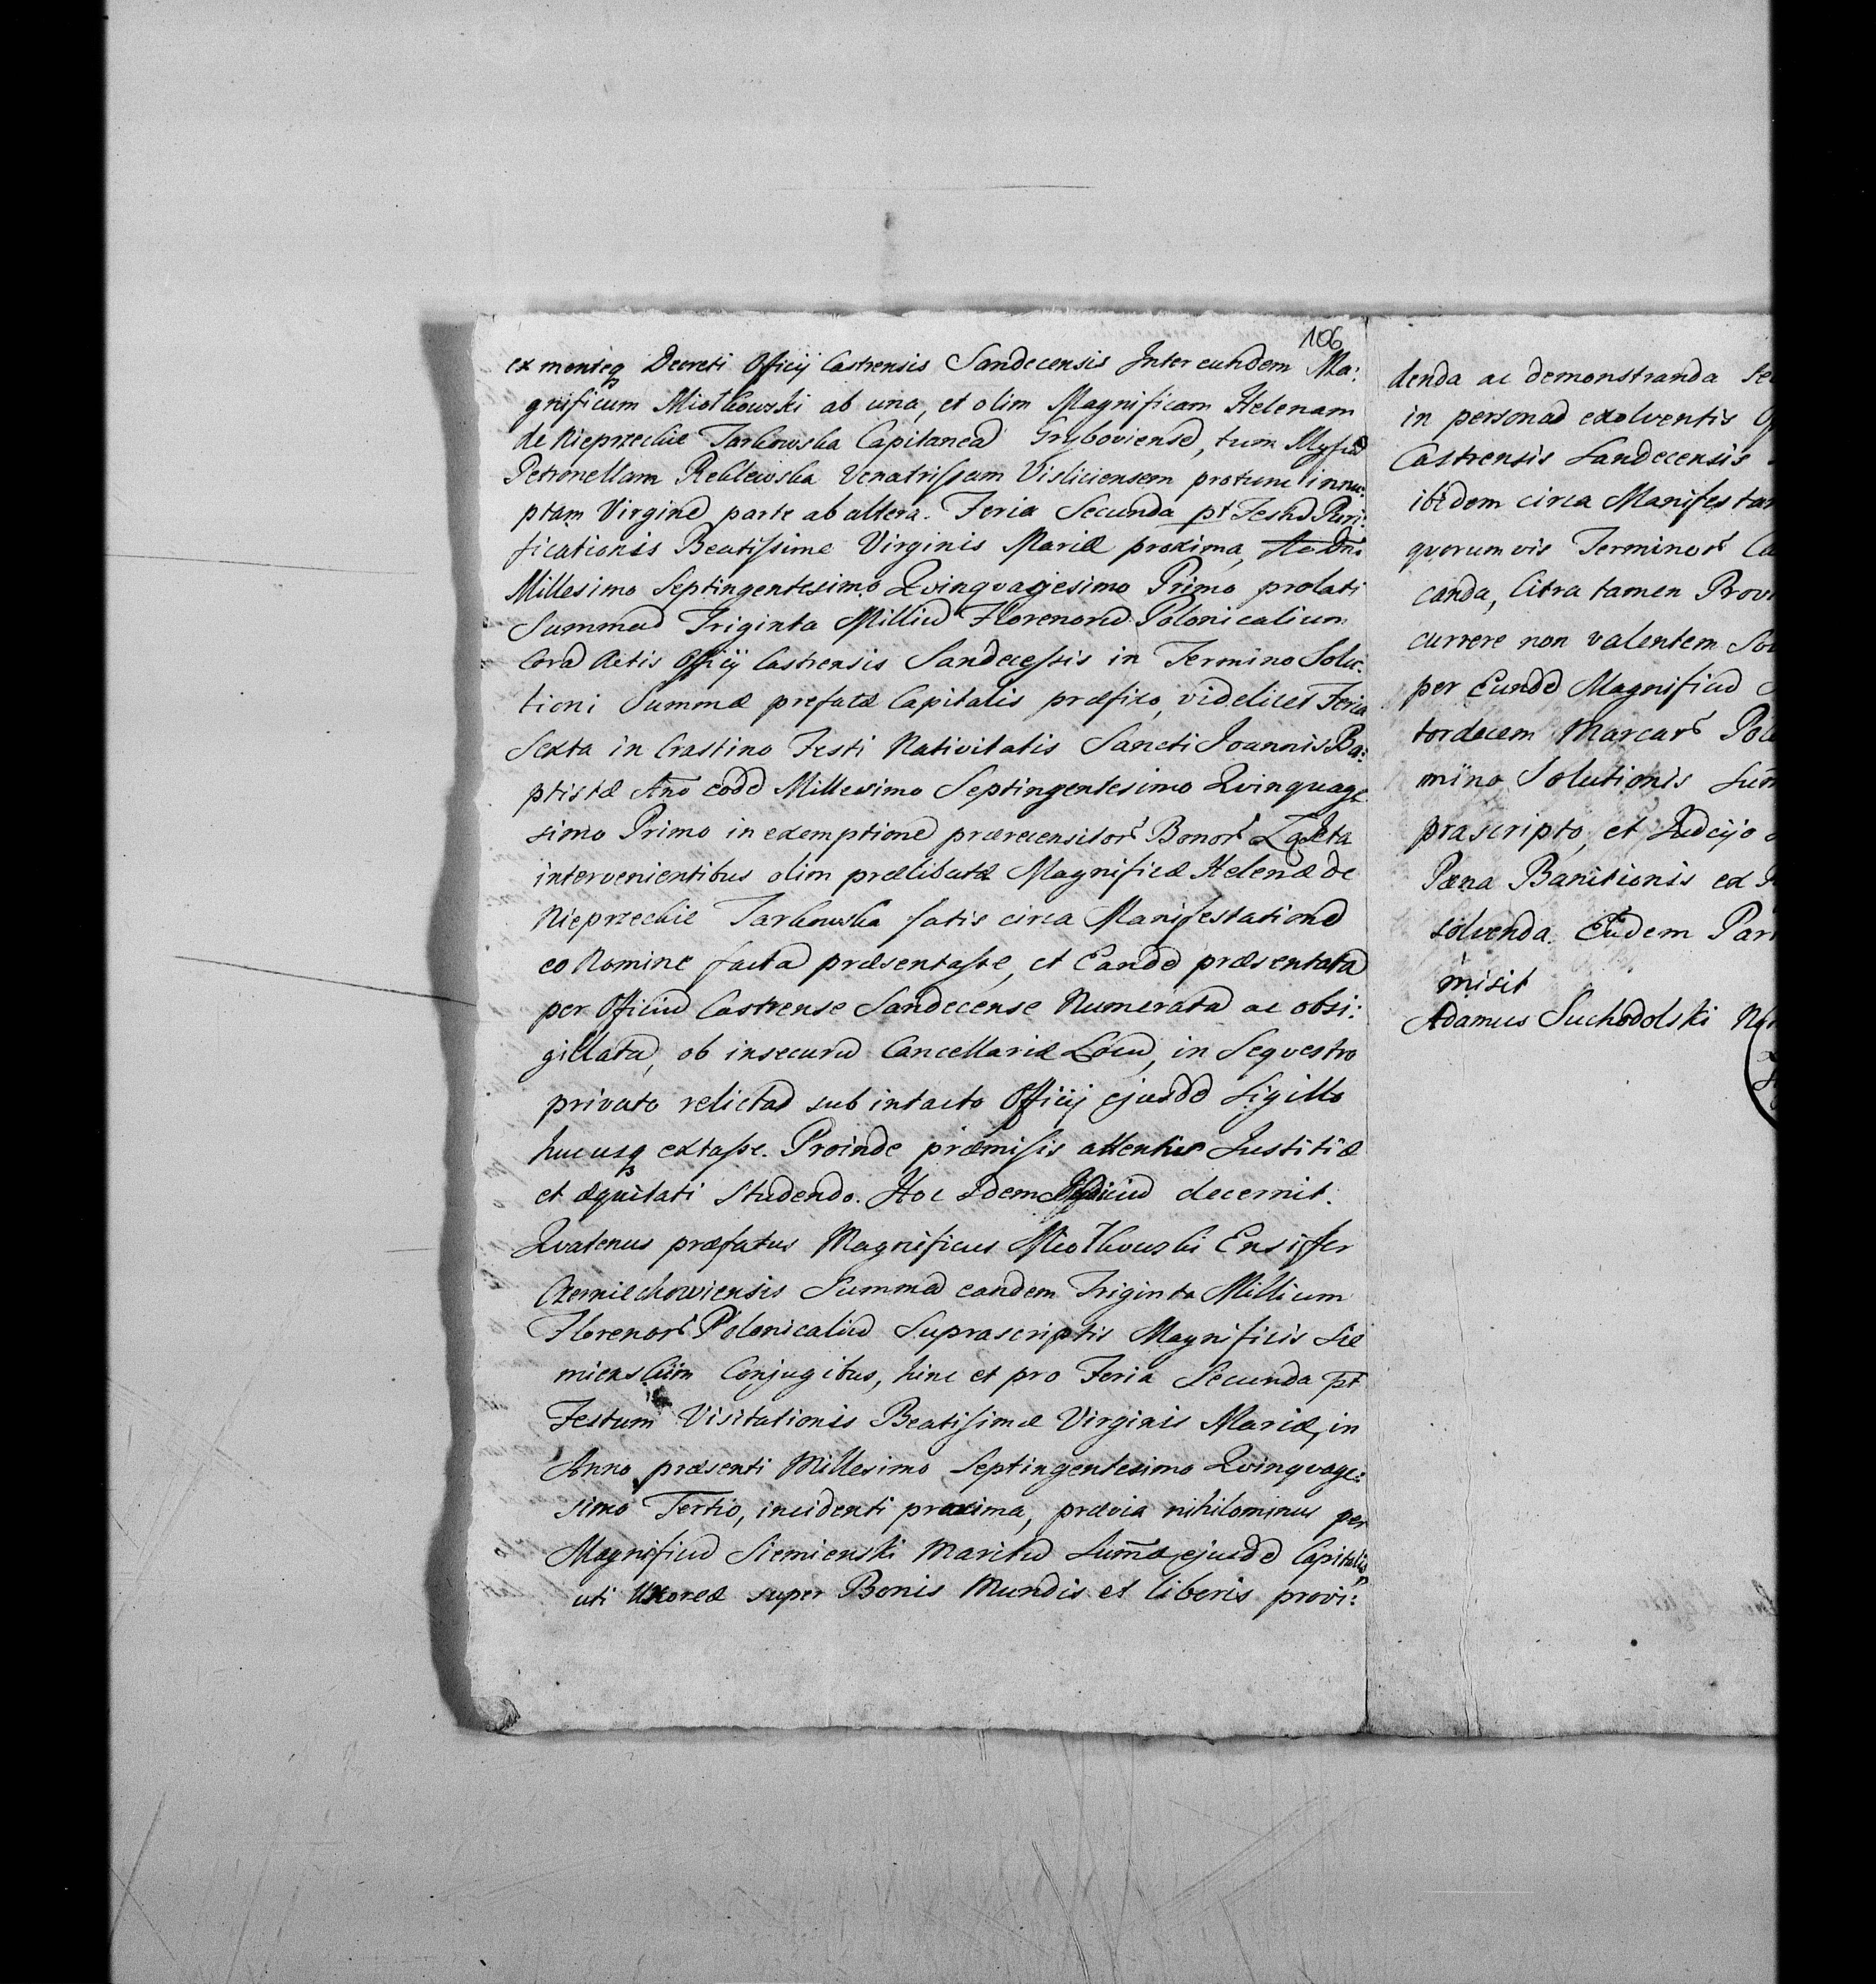 106
ex menteq Decreti Officij Castrensis Sandecensis Inter eundem Ma:
gnificum Miotkowski ab una, et olim Magnificam Helenam
de Nieprzeckie Tarkowska Capitanea Gryboviense, tum Mgfca
Petronellam Reklewska Venatrissam Visliciensem protunc innu:
ptam Virgine parte ab altera. Feria Secunda pt Festu Puri:
ficationis Beatissime Virginis Mariæ proxima, Ao Dni
Millesimo Septingentesimo Qvinqvagesimo Primo prolati
Summa Triginta Milliu Florenoru Polonicalium
Cora Actis Officij Castrensis Sandecessis in Termino Solu:
tioni Summæ prefatæ Capitalis præfixo, videlicet Feria
Sexta in Crastino Festi Nativitatis Sancti Joannis Ba:
ptistæ Ano eode Millesimo Septingentesimo Qvinquage
simo Primo in exemptione præreensitor Bonor Zaleta
intervenientibus olim prælibatæ Magnificæ Helenæ de
Nieprzeckie Tarkowska satis circa Manifestatione
eo Nomine facta præsentasse, et Eande præsentata
per Officiu Castrense Sandecense Numerata ac obsi:
gillata, ob insecuru Cancellariæ Locu, in Seqvestro
privato relicta sub intacto Officij ejusde Sigillo
hucusq extasse. Proinde præmissis attentis Justitiæ
et æquitati studendo. Hoc Idem Judiciu decernit.
Qvatenus præfatus Magnificus Miotkowski Ensifer
Czerniechowiensis Summa eandem Triginta Millium
Florenor Polonicaliu Suprascriptis Magnificis Sie
mienskim Conjugibus, hinc et pro Feria Secunda pt
Festum Visitationis Beatissimæ Virginis Mariæ, in
Anno præsenti Millesimo Septingentesimo Qvinqvage:
simo Tertio, incidenti proxima, prævia nihilominus per
Magnificu Siemienski Maritu Sumæ ejusde Capitalis
uti Uxoreæ super Bonis Mundis et liberis provi:
denda ac demonstranda
in persona exolventis
Castrensis Sandecensis
ibidem circa
qvorumvis Terminor
canda, Citra tamen
currere non valentem
per Eunde Magnificu
tordecem Marcar
mino Solutionis
præscripto, et Judicijo
Pæna Banitionis ex
solvenda. Eisdem
misit
Adamus Suchodolski